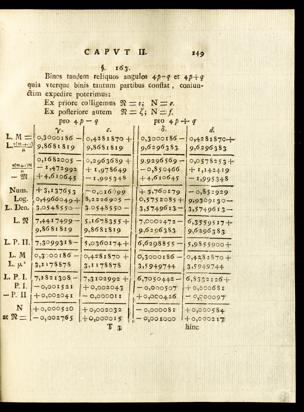 CAPVT II. 149
§. 163.
Binos tandem reliquos angulos 4p−q et 4p+q
quia vterque binis tantum partibus constat, coniun-
ctim expedire poterimus:
Ex priore colligemus 𝔑 = ε; N = e.
Ex posteriore autem 𝔑 = ζ; N = f.
pro 4p−q pro 4p+q
L. M = 0,3000186 − 0,4281870 + 0,3000186 − 0,4281870 +
9,8681819 9,8681819 9,6296383 9,6296383
0,1682005 − 0,2963689 + 9,9296569 − 0,0578253 +
− 1,472992 + 1,978649 − 0,850466 + 1,142419
+ 4,610645 − 1,995348 + 4,610645 − 1,995348
Num. + 3,137653 − 0,016699 + 3,760179 − 0,852929
Log. 0,4966049 + 8,2226905 − 0,5752085 + 9,9309130 −
L. Den. 3,0548550 − 3,0548550 − 3,5749613 − 3,5749613 −
L. 𝔑 7,4417499 − 5,1678355 + 7,0002472 − 6,3559517 +
9,8681819 9,8681819 9,6296383 9,6296383
L. P. II. 7,3099318 − 5,0360174 + 6,6298855 − 5,9855900 +
L. M 0,3000186 − 0,4281870 + 0,3000186 − 0,4281870 +
3,1178878 3,1178878 3,5949744 3,5949744
L. P. I.
P. I. − 0,001521 + 0,002043 − 0,000507 + 0,000681
− P. II + 0,002041 − 0,000011 + 0,000426 − 0,000097
N + 0,000520 + 0,002032 − 0,000081 + 0,000584
− 0,002765 + 0,000015 − 0,001000 + 0,000217
T 3 hinc